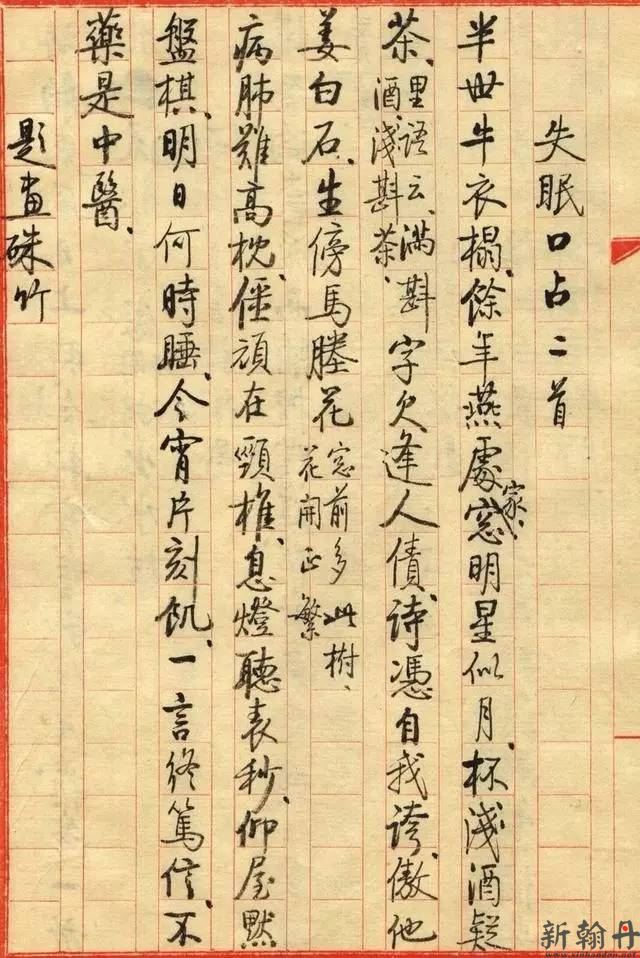 失眠口占二首
半世牛衣榻、餘年燕處家、窓明星似月、杯淺酒疑
茶、里語云、滿斟酒、淺斟茶、字欠逢人債、詩憑自我誇、傲他
姜白石、生傍馬塍花 窓前多此樹、花開正繁
病肺難高枕、僵頑在頸椎、息燈聽表秒、仰屋默
盤棋、明日何時睡、今宵片刻飢、一言終篤信、不
藥是中醫、
題畫硃竹
新翰丹
www.xinhandan.net